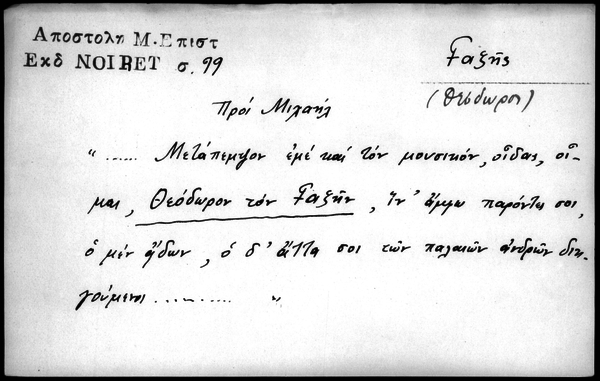 Αποστολη Μ. Επιστ
Εκδ NOIRET σ. 99
Γαζῆς
(Θεόδωρος)
Πρὸς Μιχαὴλ
"...... Μετάπεμψον ἐμέ καὶ τόν μουσικόν, οἶδας, οἶ-
μαι, Θεόδωρον τόν Γαζῆν, ἵν' ἄμφω παρόντες σοι,
ὁ μέν ᾄδων, ὁ δ' ἄττα σοι τῶν παλαιῶν ἀνδρῶν διη-
γούμενος .......... "